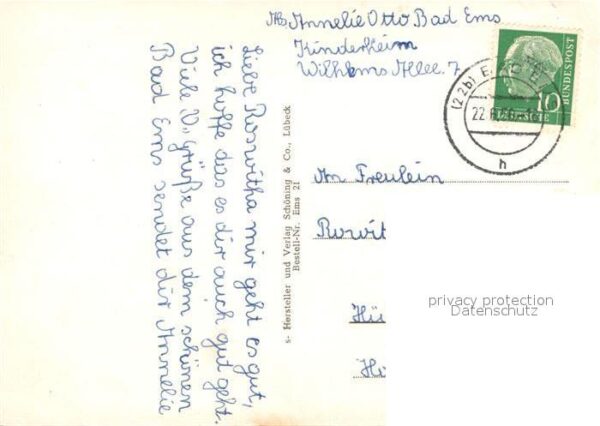 Abs Annelie Otto Bad Ems
Kinderheim
Wilhlems Allee. 7
Liebe Roswitha mir geht es gut,
ich hoffe das es dir auch gut geht.
Viele 10,, Grüße aus dem schönen
Bad Ems sendet dir Annelie
s- Hersteller und Verlag Schöning & Co., Lübeck
Bestell-Nr. Ems 21
DEUTSCHE
BUNDESPOST
10
(22b)
22
h
An Freulein
privacy protection
Datenschutz